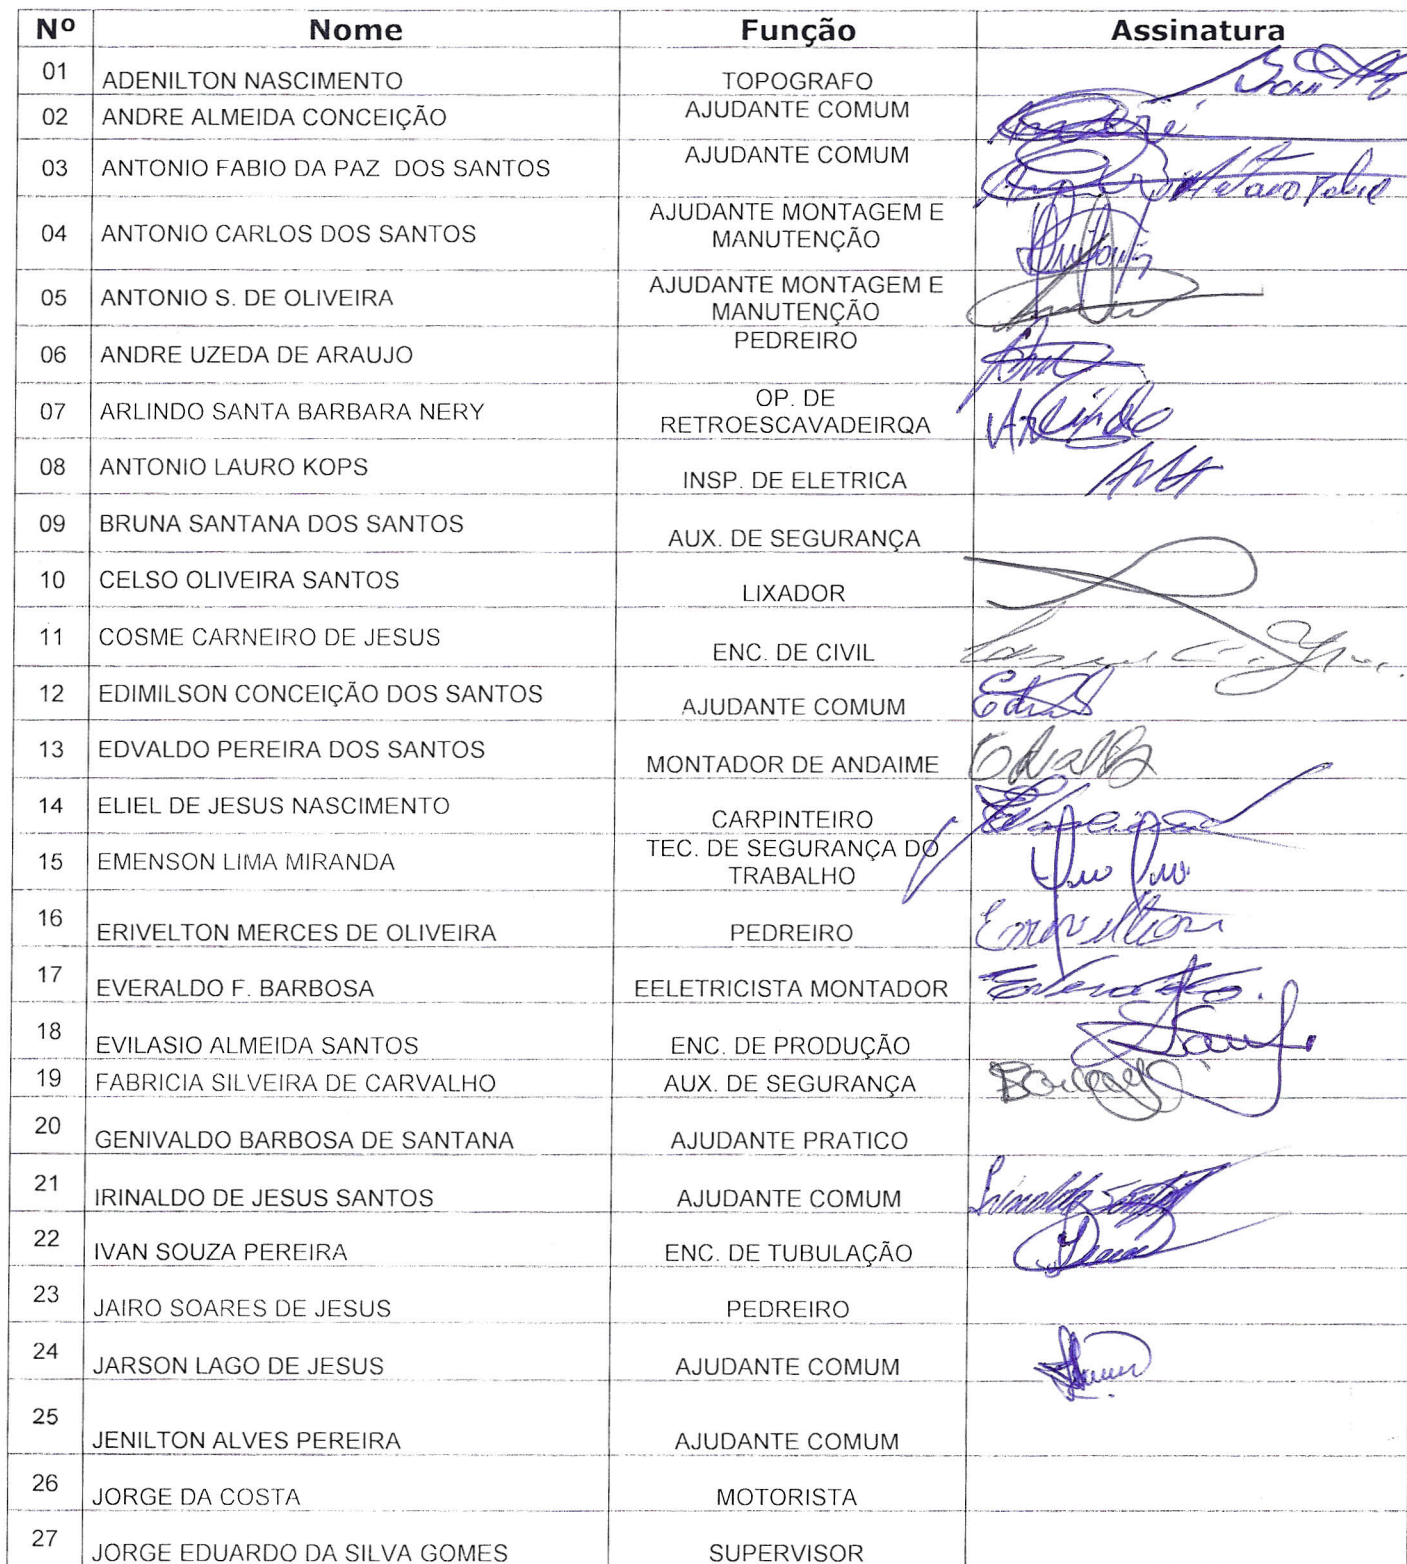 Nº Nome Função Assinatura
01 ADENILTON NASCIMENTO TOPOGRAFO
02 ANDRE ALMEIDA CONCEIÇÃO AJUDANTE COMUM André
03 ANTONIO FABIO DA PAZ DOS SANTOS AJUDANTE COMUM
04 ANTONIO CARLOS DOS SANTOS AJUDANTE MONTAGEM E
MANUTENÇÃO
05 ANTONIO S. DE OLIVEIRA AJUDANTE MONTAGEM E
MANUTENÇÃO
06 ANDRE UZEDA DE ARAUJO PEDREIRO
07 ARLINDO SANTA BARBARA NERY OP. DE
RETROESCAVADEIRQA Arlindo
08 ANTONIO LAURO KOPS INSP. DE ELETRICA
09 BRUNA SANTANA DOS SANTOS AUX. DE SEGURANÇA
10 CELSO OLIVEIRA SANTOS LIXADOR
11 COSME CARNEIRO DE JESUS ENC. DE CIVIL
12 EDIMILSON CONCEIÇÃO DOS SANTOS AJUDANTE COMUM
13 EDVALDO PEREIRA DOS SANTOS MONTADOR DE ANDAIME
14 ELIEL DE JESUS NASCIMENTO CARPINTEIRO
15 EMENSON LIMA MIRANDA TEC. DE SEGURANÇA DO
TRABALHO
16 ERIVELTON MERCES DE OLIVEIRA PEDREIRO
17 EVERALDO F. BARBOSA EELETRICISTA MONTADOR
18 EVILASIO ALMEIDA SANTOS ENC. DE PRODUÇÃO
19 FABRICIA SILVEIRA DE CARVALHO AUX. DE SEGURANÇA
20 GENIVALDO BARBOSA DE SANTANA AJUDANTE PRATICO
21 IRINALDO DE JESUS SANTOS AJUDANTE COMUM
22 IVAN SOUZA PEREIRA ENC. DE TUBULAÇÃO
23 JAIRO SOARES DE JESUS PEDREIRO
24 JARSON LAGO DE JESUS AJUDANTE COMUM
25 JENILTON ALVES PEREIRA AJUDANTE COMUM
26 JORGE DA COSTA MOTORISTA
27 JORGE EDUARDO DA SILVA GOMES SUPERVISOR